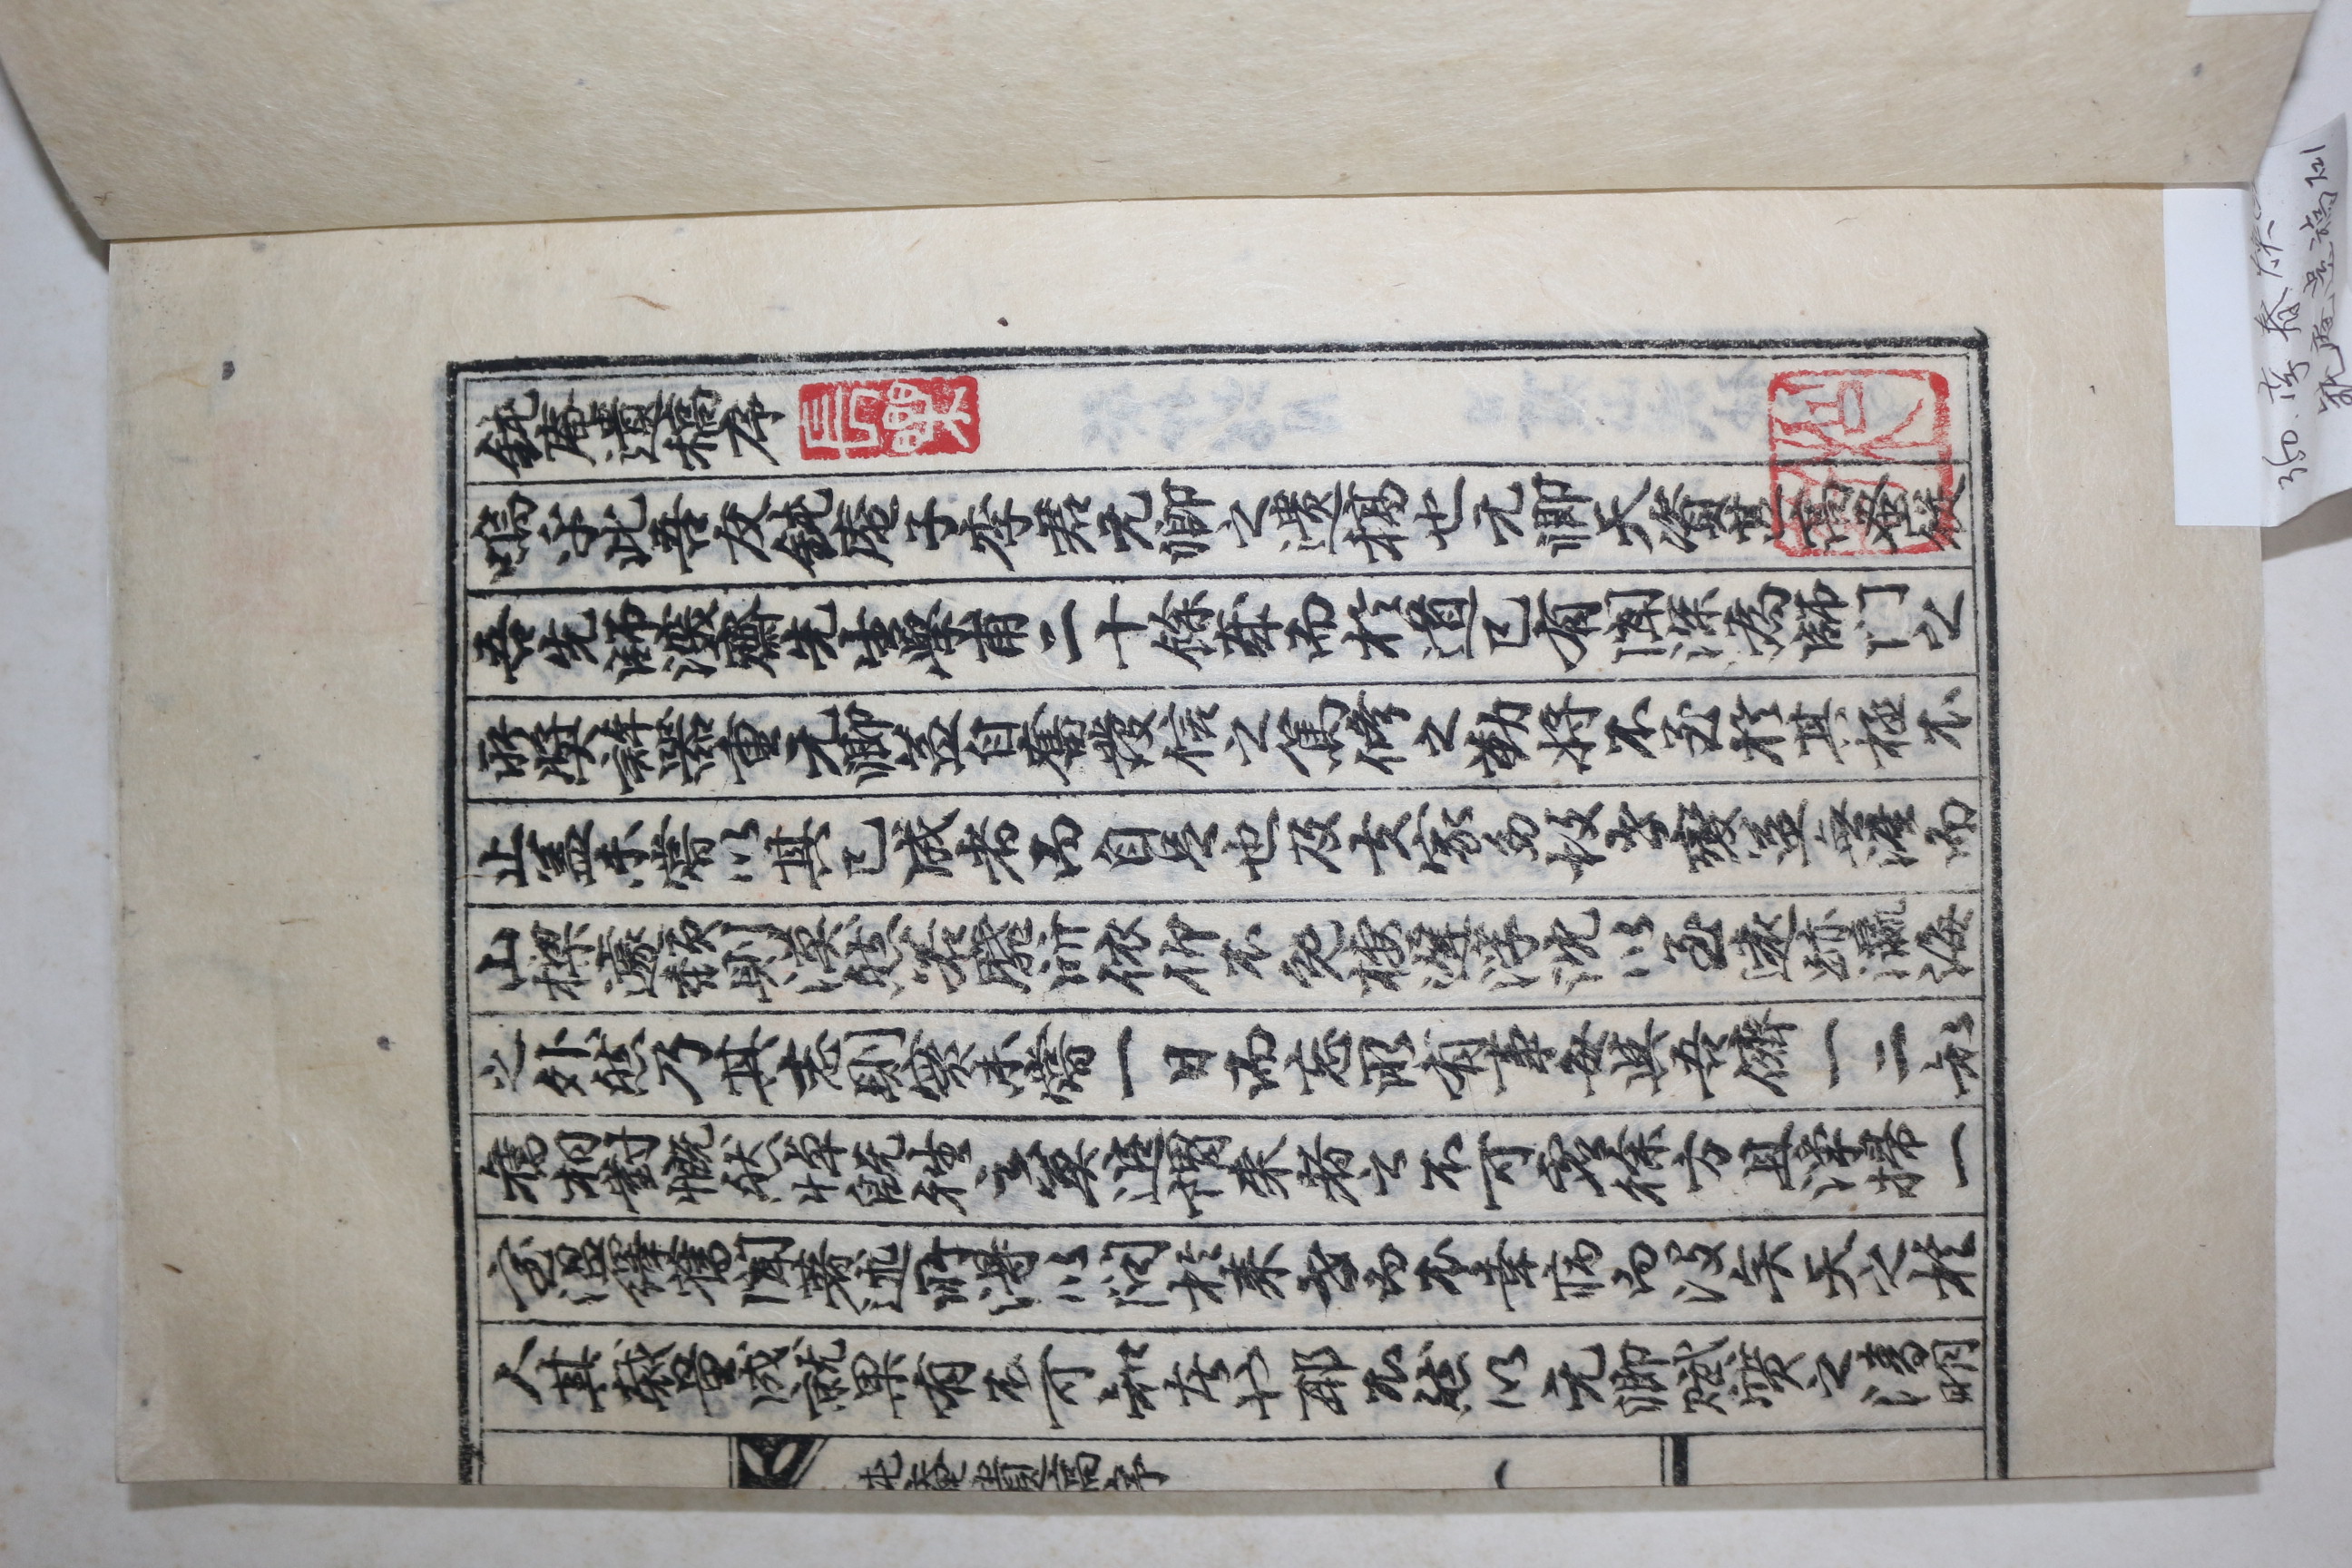 鈍庵遺稿序
嗚乎此吾友鈍庵子李君元卿之遺稿也元卿天資甚高蚤從
吾先師深齋先生學甫二十餘歲而於道已有聞深為師門之
所奬許器重元卿益自奮發信之篤修之勤將不至於其極不
止盖未嘗以其已成者而自足也及夫家多故李變益無涯而
山樑遽頹則漠然若靡所依仰不免棲遲浮沈以至遠跡瀛海
之外然乃其志則實未嘗一日而忘所有事每與吾儕一二知
舊相對慨然悼旣往之莫追謂來者之不可虛徐方且淨掃一
室温繹舊聞著述所得以問於來者而不幸病而没矣天之於
人其裁量成就果有不可知者如耶不然以元卿賦質之清明
鈍庵遺稿序
一
350. 李春
鈍庵遺稿